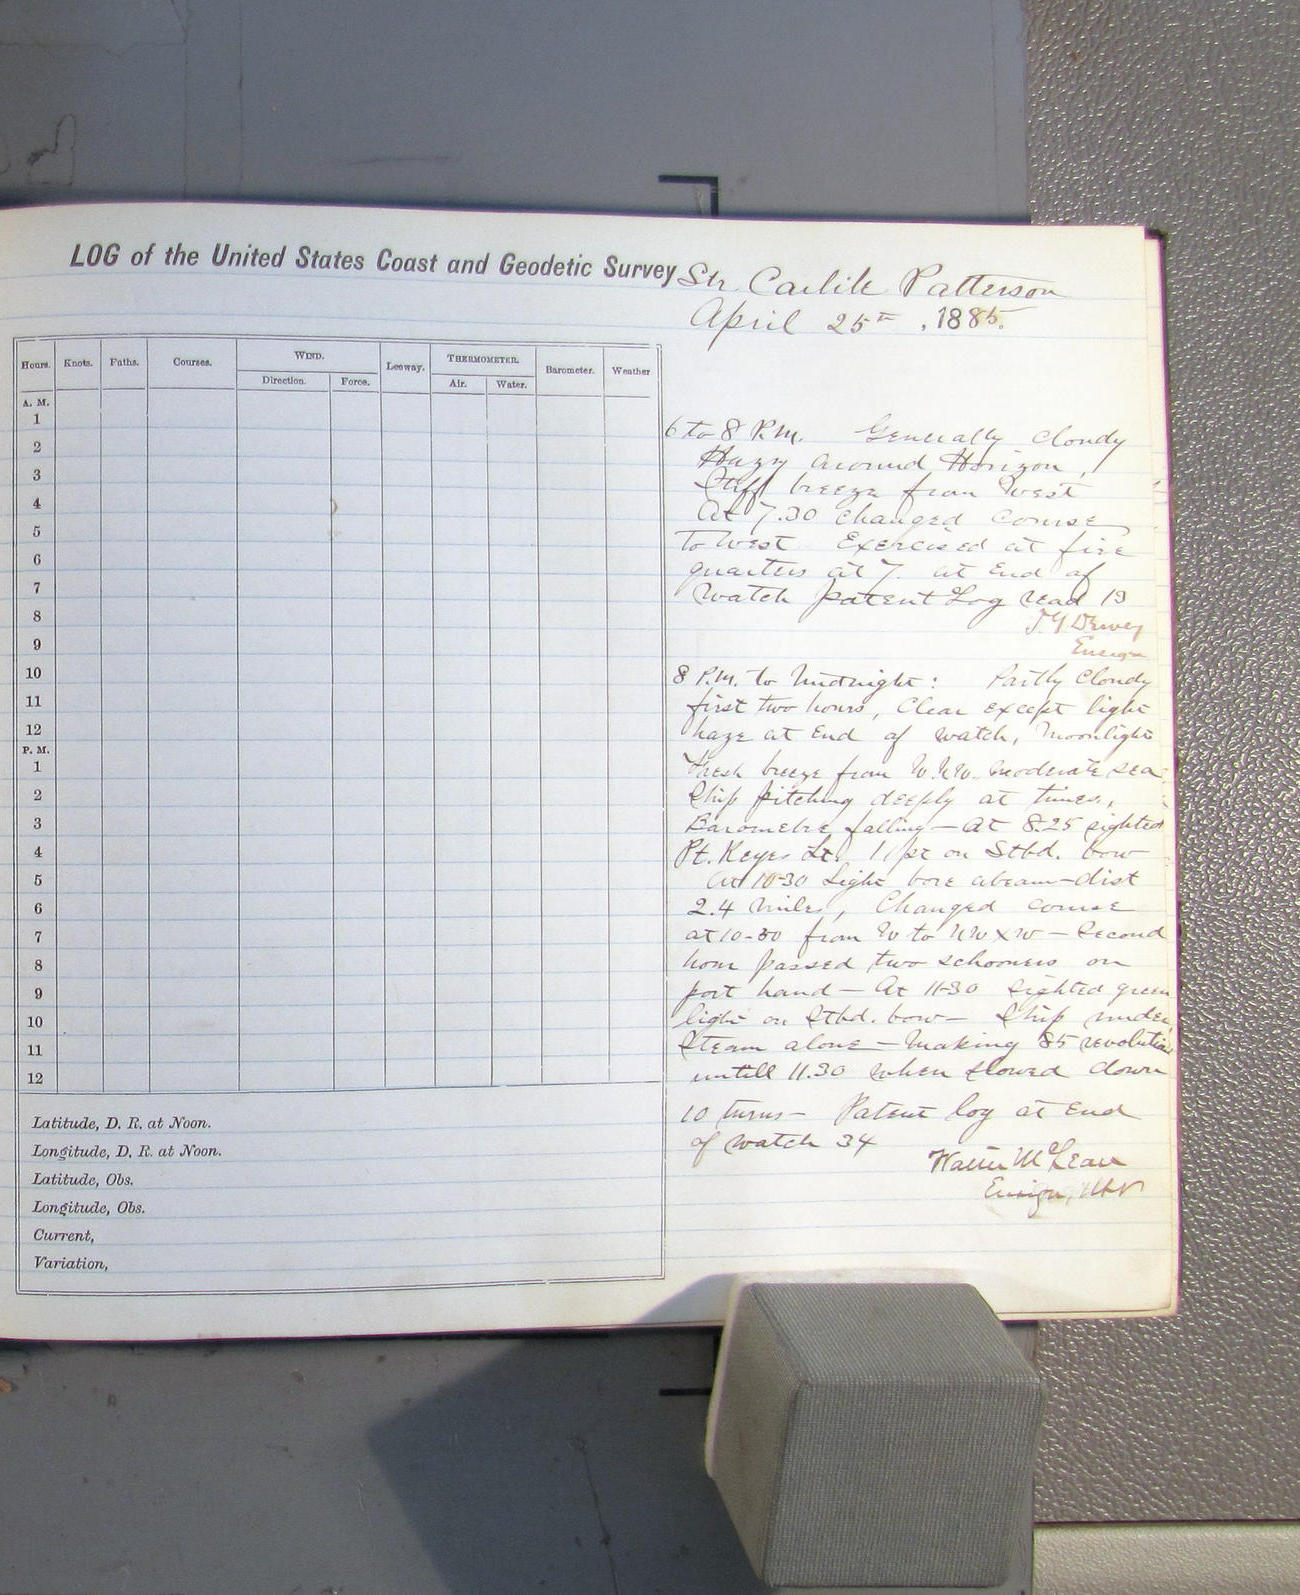 LOG of the United States Coast and Geodetic Survey Str Carlile Patterson
April 25th, 1885.
Hours. Knots. Faths. Courses. WIND. Leeway. THERMOMETER. Barometer. Weather
Direction. Force. Air. Water.
A. M.
1
2
3
4
5
6
7
8
9
10
11
12
P. M.
1
2
3
4
5
6
7
8
9
10
11
12
Latitude, D. R. at Noon.
Longitude, D. R. at Noon.
Latitude, Obs.
Longitude, Obs.
Current,
Variation,
6 to 8 P.M. Generally cloudy
Hazy around Horizon,
Stiff breeze from West
At 7.30 changed course
to West Exercised at fire
quarters at 7. at End of
Watch patent Log read 19
Dewey
Ensign
8 P.M. to Midnight: Partly Cloudy
first two hours, Clear except light
haze at End of watch, Moonlight
Fresh breeze from W.N.W. moderate sea
Ship pitching deeply at times,
Barometre falling — At 8.25 sighted
Pt. Reyes Lt. 1 pt on Stbd. bow
At 10-30 Light bore abeam — dist
2.4 miles, Changed course
at 10-30 from W to NWxW — Second
hour passed two schooners on
port hand — At 11-30 sighted green
light on Stbd. bow — Ship under
Steam alone — Making 85 revolutions
untill 11.30 when slowed down
10 turns — Patent log at End
of watch 34
Walter McLean
Ensign, USN